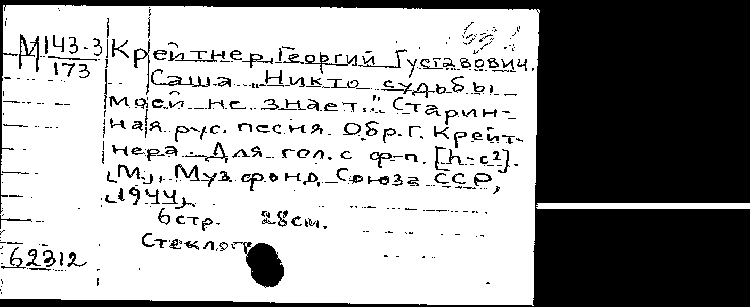 М 143-3
173
Крейтнер, Георгий Густавович.
Саша "Никто судьбы
моей не знает." Старин-
ная рус. песня. Обр. Г. Крейт-
нера. Для гол. с ф-п. [h-c²].
[М.], Музфонд Союза ССР,
[1944].
6 стр. 28 см.
Стеклогр
62312